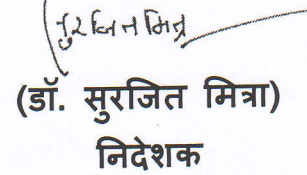 सुरजित मित्र
(डॉ. सुरजित मित्रा)
निदेशक